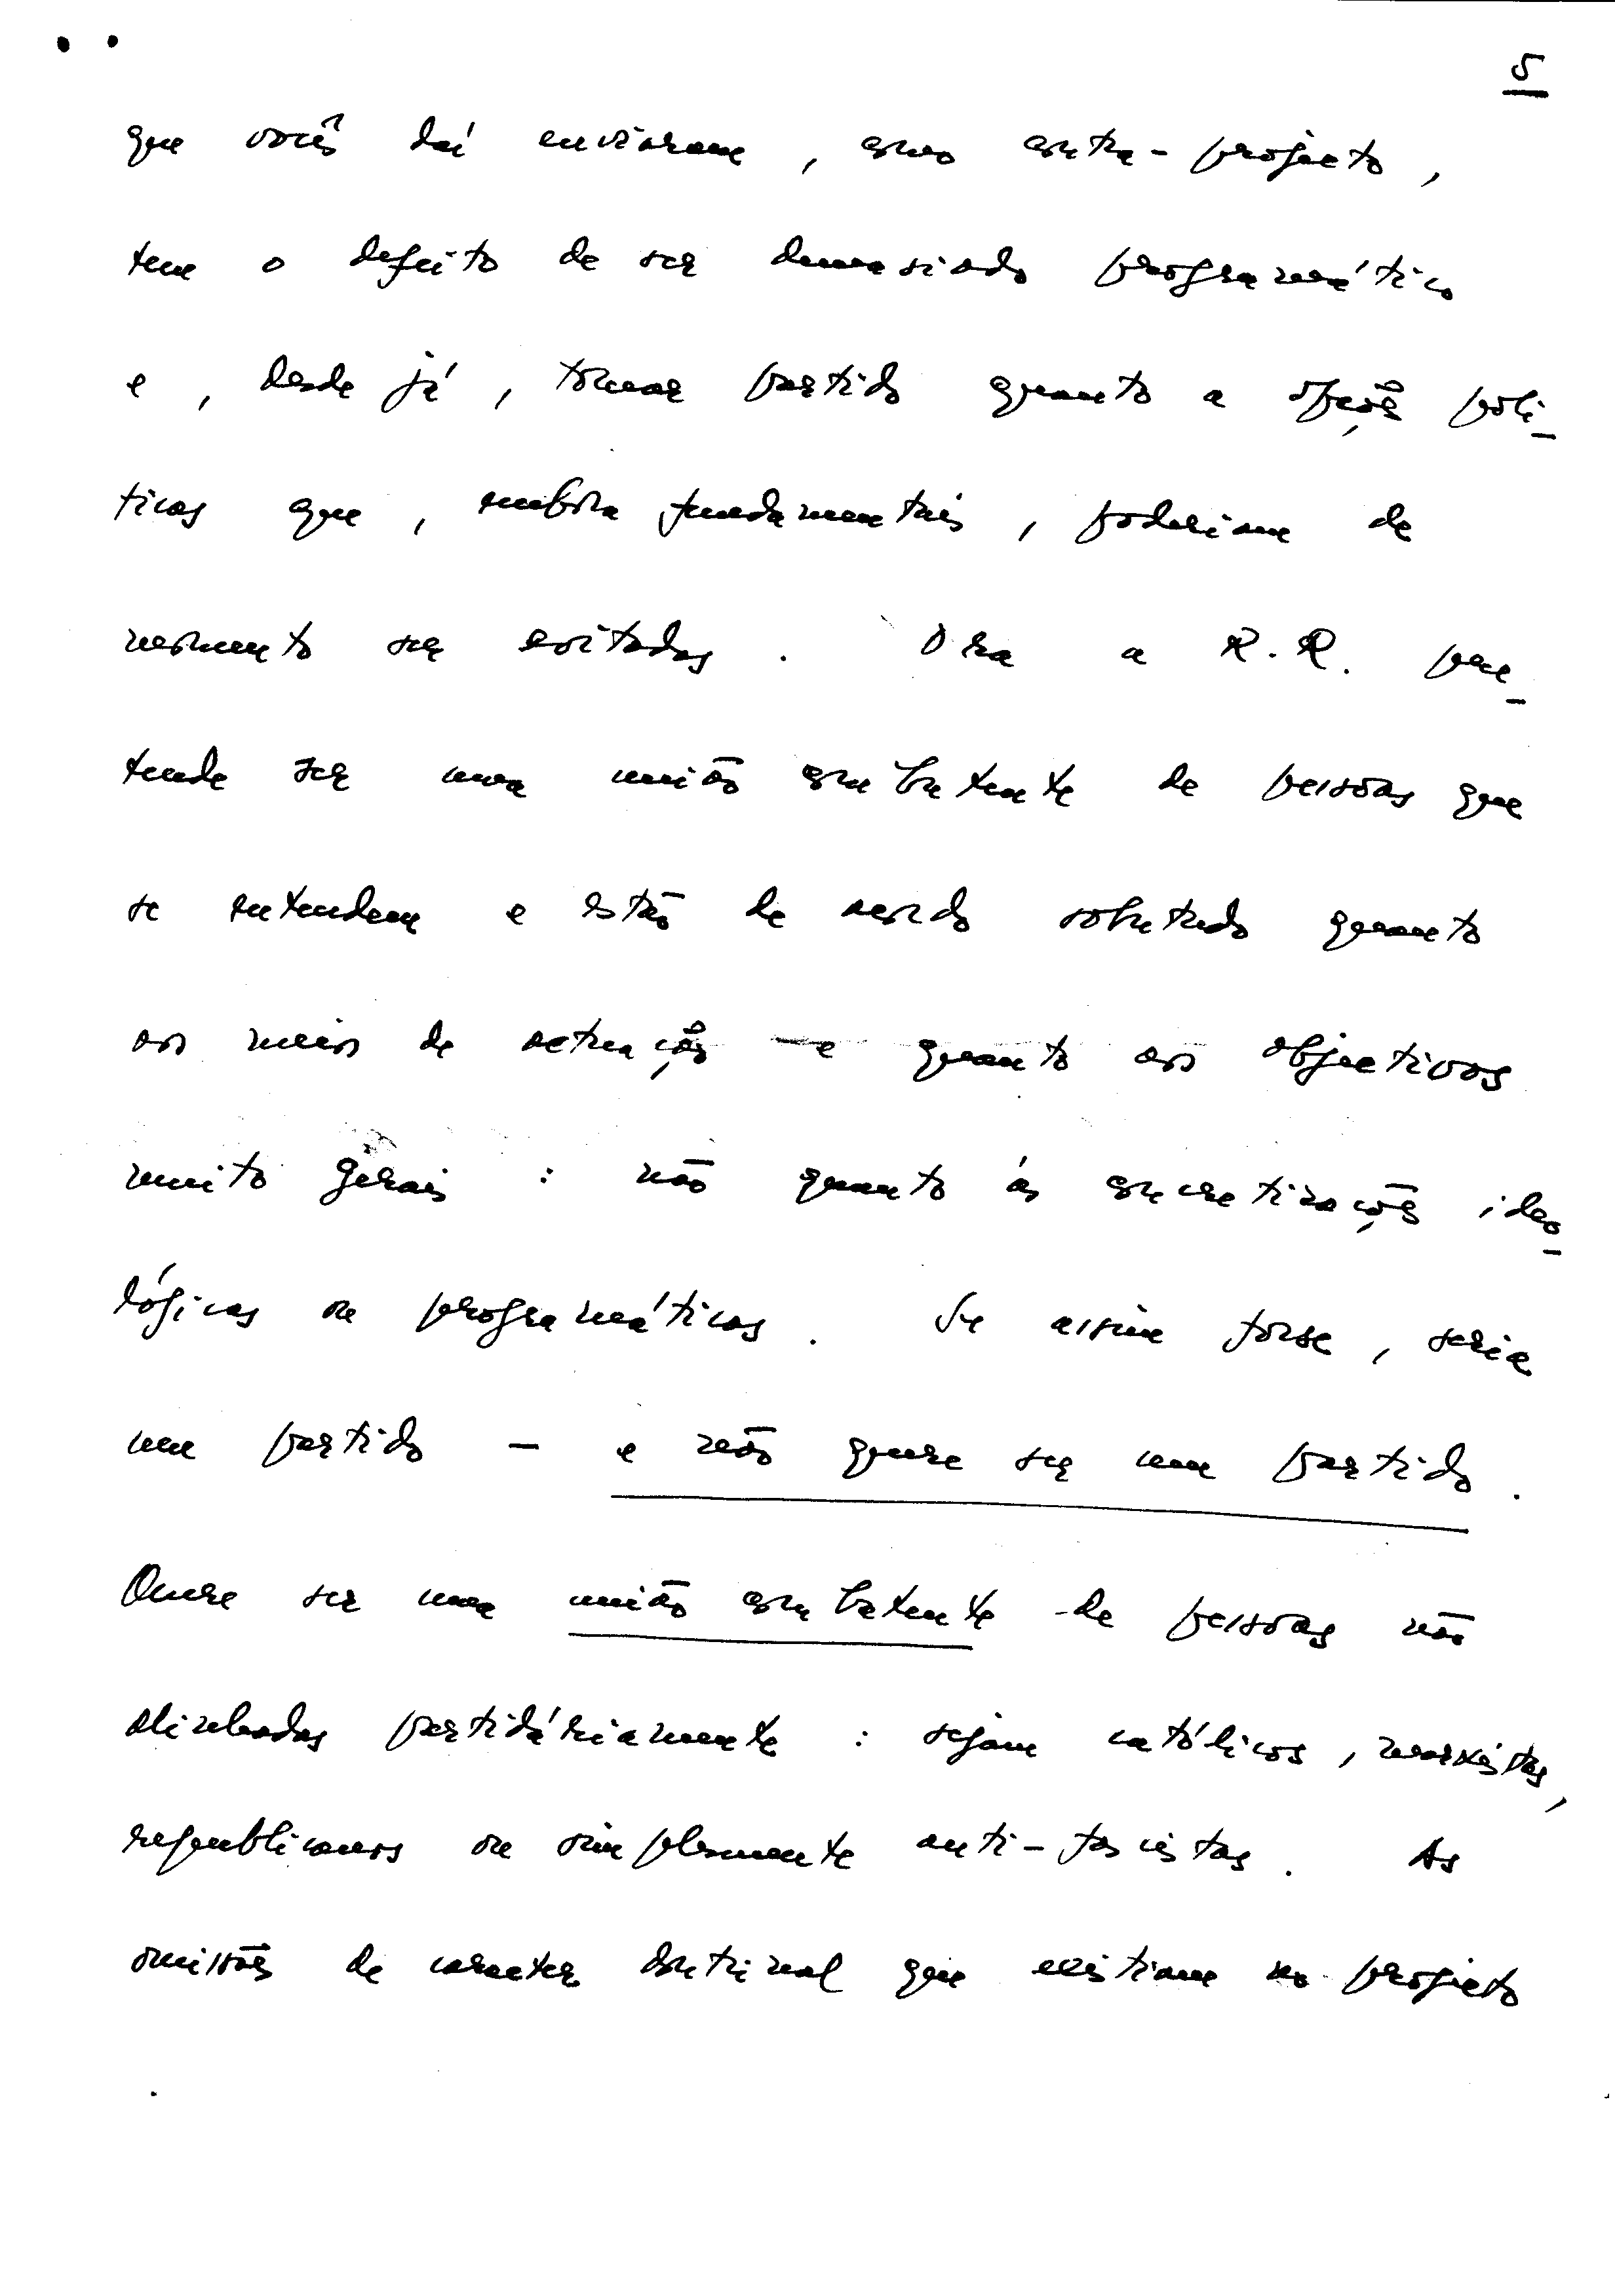 5
que vocês daí enviaram, como contra-projecto,
tem o defeito de ser demasiado programático
e, desde já, tomar partido quanto a opções polí-
ticas que, embora fundamentais, poderiam de
momento ser evitadas. Ora a R.R. pre-
tende ser uma união combatente de pessoas que
se entendem e estão de acordo sobretudo quanto
aos meios de actuação — e quanto aos objectivos
muito gerais : não quanto às concretizações ideo-
lógicas ou programáticas. Se assim fosse, seria
um partido — e não quere ser um partido.
Quere ser uma união combatente de pessoas não
alinhadas partidáriamente : sejam católicos, marxistas,
republicanos ou simplesmente anti-fascistas. As
omissões de caracter doutrinal que existiam no projecto